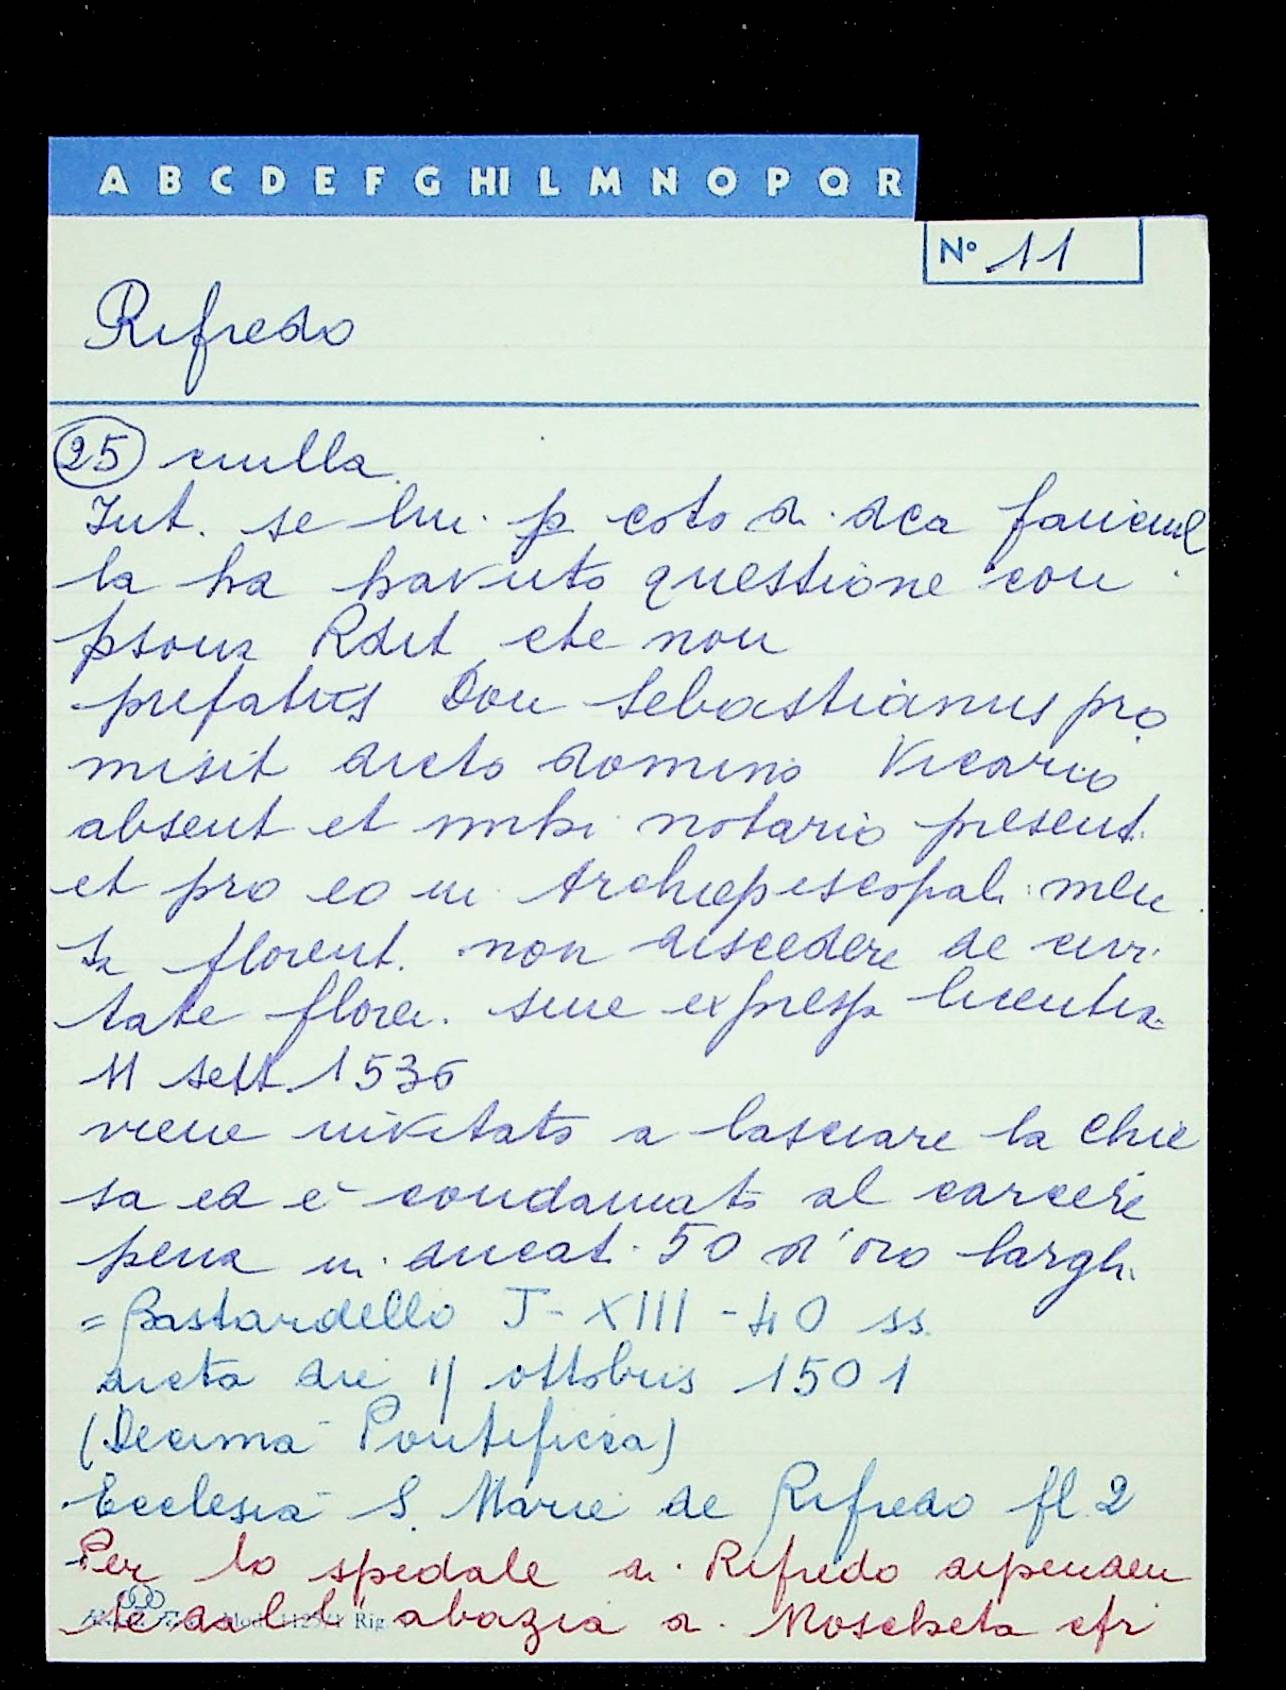 A B C D E F G HI L M N O P Q R
Nº 11
Rifredo
25 ciulla
Int. se lui p coto di dca fanciul
la ha havuto questione con
psona Rdit che non
prefatus Don Sebastianus pro
misit dicto domino Vicario
absent et mihi notario present.
et pro eo in Archiepiscopali men
sa florent. non discedere de civi
tate floren. sine expressa licentia
11 sett. 1536
viene invitato a lasciare la chie
sa ed è condannato al carcere
pena di ducat. 50 d'oro larghi
= Bastardello I - XIII - 40 ss.
dicta die 11 ottobris 1501
(Decima Pontificia)
Ecclesia S. Marie de Rifredo fl. 2
Per lo spedale di Rifredo dipenden
te dall'abazia di Moscheta cfr